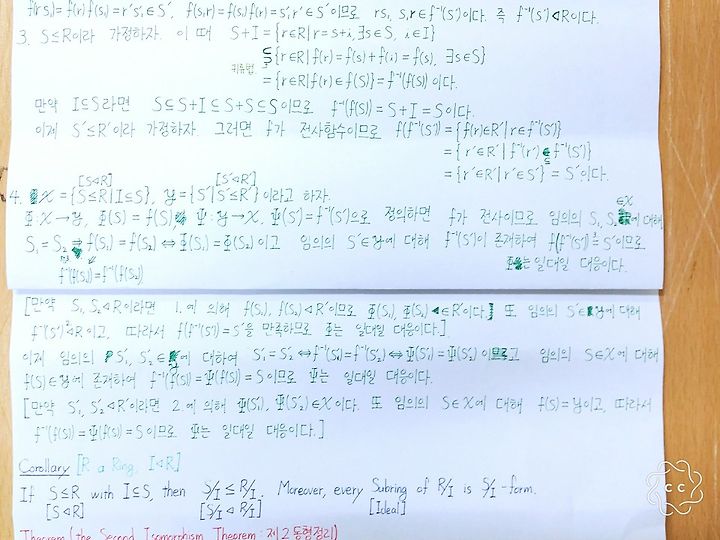 f(rs₁)=f(r)f(s₁)=r's₁'∈S', f(s₁r)=f(s₁)f(r)=s₁'r'∈S'이므로 rs₁, s₁r∈f⁻¹(S')이다. 즉 f⁻¹(S')⊲R이다.
3. S≤R이라 가정하자. 이 때 S+I = {r∈R | r=s+i, ∃s∈S, i∈I}
= {r∈R | f(r)=f(s)+f(i)=f(s), ∃s∈S}
= {r∈R | f(r)∈f(S)} = f⁻¹(f(S))이다.
만약 I⊆S라면 S⊆S+I⊆S+S⊆S이므로 f⁻¹(f(S))=S+I=S이다.
이제 S'≤R'이라 가정하자. 그러면 f가 전사함수이므로 f(f⁻¹(S')) = {f(r)∈R' | r∈f⁻¹(S')}
= {r'∈R' | f⁻¹(r')⊆f⁻¹(S')}
= {r'∈R' | r'∈S'} = S'이다.
[S⊲R] [S'⊲R']
4. X={S≤R | I⊆S}, y={S' | S'≤R'}이라고 하자.
Φ:X→y, Φ(S)=f(S), Ψ:y→X, Ψ(S')=f⁻¹(S')으로 정의하면 f가 전사이므로 임의의 S₁, S₂∈X에 대해
S₁=S₂ ⇔ f(S₁)=f(S₂) ⇔ Φ(S₁)=Φ(S₂)이고 임의의 S'∈y에 대해 f⁻¹(S')이 존재하여 f(f⁻¹(S'))=S'이므로
f⁻¹(f(S₁))=f⁻¹(f(S₂)) Φ는 일대일 대응이다.
[만약 S₁, S₂⊲R이라면 1.에 의해 f(S₁), f(S₂)⊲R'이므로 Φ(S₁), Φ(S₂)∈R'이다. 또 임의의 S'∈y에 대해
f⁻¹(S')⊲R이고, 따라서 f(f⁻¹(S'))=S'을 만족하므로 Φ는 일대일 대응이다.]
이제 임의의 S₁', S₂'∈y에 대하여 S₁'=S₂' ⇔ f⁻¹(S₁')=f⁻¹(S₂') ⇔ Ψ(S₁')=Ψ(S₂')이고 임의의 S∈X에 대해
f(S)∈y에 존재하여 f⁻¹(f(S))=Ψ(f(S))=S이므로 Ψ는 일대일 대응이다.
[만약 S₁', S₂'⊲R'이라면 2.에 의해 Ψ(S₁'), Ψ(S₂')∈X이다. 또 임의의 S∈X에 대해 f(S)=y이고, 따라서
f⁻¹(f(S))=Ψ(f(S))=S이므로 Ψ는 일대일 대응이다.]
Corollary [R a Ring, I⊲R]
If S≤R with I⊆S, then S/I ≤ R/I. Moreover, every Subring of R/I is S/I-form.
[S⊲R] [S/I ⊲ R/I] [Ideal]
Theorem (the Second Isomorphism Theorem: 제2동형정리)
CC